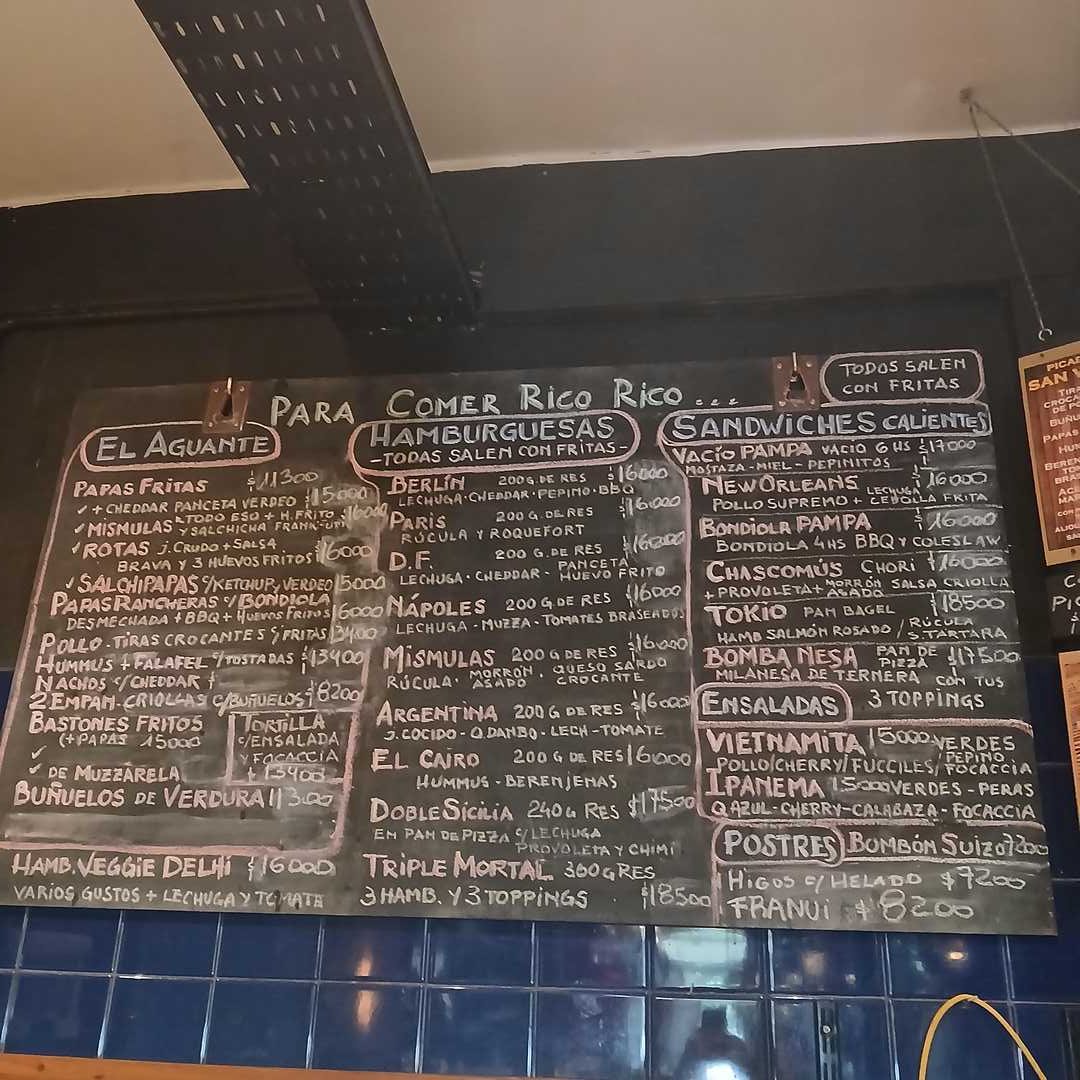 PARA COMER RICO RICO...
TODOS SALEN
CON FRITAS
EL AGUANTE
PAPAS FRITAS $11300
✓ + CHEDDAR PANCETA VERDEO $15000
✓ MISMULAS TODO ESO + H. FRITO $16000
Y SALCHICHA FRANKFURT
✓ ROTAS J. CRUDO + SALSA
BRAVA Y 3 HUEVOS FRITOS $16000
✓ SALCHIPAPAS C/KETCHUP, VERDEO 15000
PAPAS RANCHERAS C/BONDIOLA
DESMECHADA + BBQ + HUEVOS FRITOS 16000
POLLO - TIRAS CROCANTES C/FRITAS 13400
HUMMUS + FALAFEL C/TOSTADAS $13400
NACHOS C/CHEDDAR $
2 EMPAN. CRIOLLAS C/BUÑUELOS $8200
BASTONES FRITOS
(+PAPAS 15000
✓
✓ DE MUZZARELA
TORTILLA
C/ENSALADA
Y FOCACCIA
$13400
BUÑUELOS DE VERDURA 11300
HAMB. VEGGIE DELHI $16000
VARIOS GUSTOS + LECHUGA Y TOMATE
HAMBURGUESAS
-TODAS SALEN CON FRITAS-
BERLÍN 200 G. DE RES $16000
LECHUGA·CHEDDAR·PEPINO·BBQ
PARIS 200 G. DE RES $16000
RÚCULA Y ROQUEFORT
D.F. 200 G. DE RES $16000
LECHUGA·CHEDDAR· PANCETA
HUEVO FRITO
NÁPOLES 200 G DE RES $16000
LECHUGA · MUZZA · TOMATES BRASEADOS
MISMULAS 200 G DE RES $16000
RÚCULA· MORRÓN ASADO · QUESO SARDO CROCANTE
ARGENTINA 200 G DE RES $16000
J. COCIDO - Q. DANBO - LECH - TOMATE
EL CAIRO 200 G DE RES $16000
HUMMUS - BERENJENAS
DOBLE SICILIA 240 G RES $17500
EN PAN DE PIZZA C/LECHUGA
PROVOLETA Y CHIMI
TRIPLE MORTAL 360 G RES
3 HAMB. Y 3 TOPPINGS $18500
SANDWICHES CALIENTES
VACÍO PAMPA VACIO 6 HS $17000
MOSTAZA - MIEL - PEPINITOS
NEW ORLEANS LECHUGA $16000
POLLO SUPREMO + CEBOLLA FRITA
BONDIOLA PAMPA $16000
BONDIOLA 4HS BBQ Y COLESLAW
CHASCOMÚS CHORI $16000
+ PROVOLETA + MORRÓN ASADO SALSA CRIOLLA
TOKIO PAN BAGEL $18500
HAMB SALMÓN ROSADO / RÚCULA
S. TARTARA
BOMBA NESA PAN DE PIZZA $17500
MILANESA DE TERNERA CON TUS
3 TOPPINGS
ENSALADAS
VIETNAMITA 15000 VERDES
POLLO/CHERRY/FUCCILES/PEPINO/FOCACCIA
IPANEMA 15000 VERDES - PERAS
Q. AZUL - CHERRY - CALABAZA - FOCACCIA
POSTRES BOMBÓN SUIZO 7200
HIGOS C/HELADO $7200
FRANUI $8200